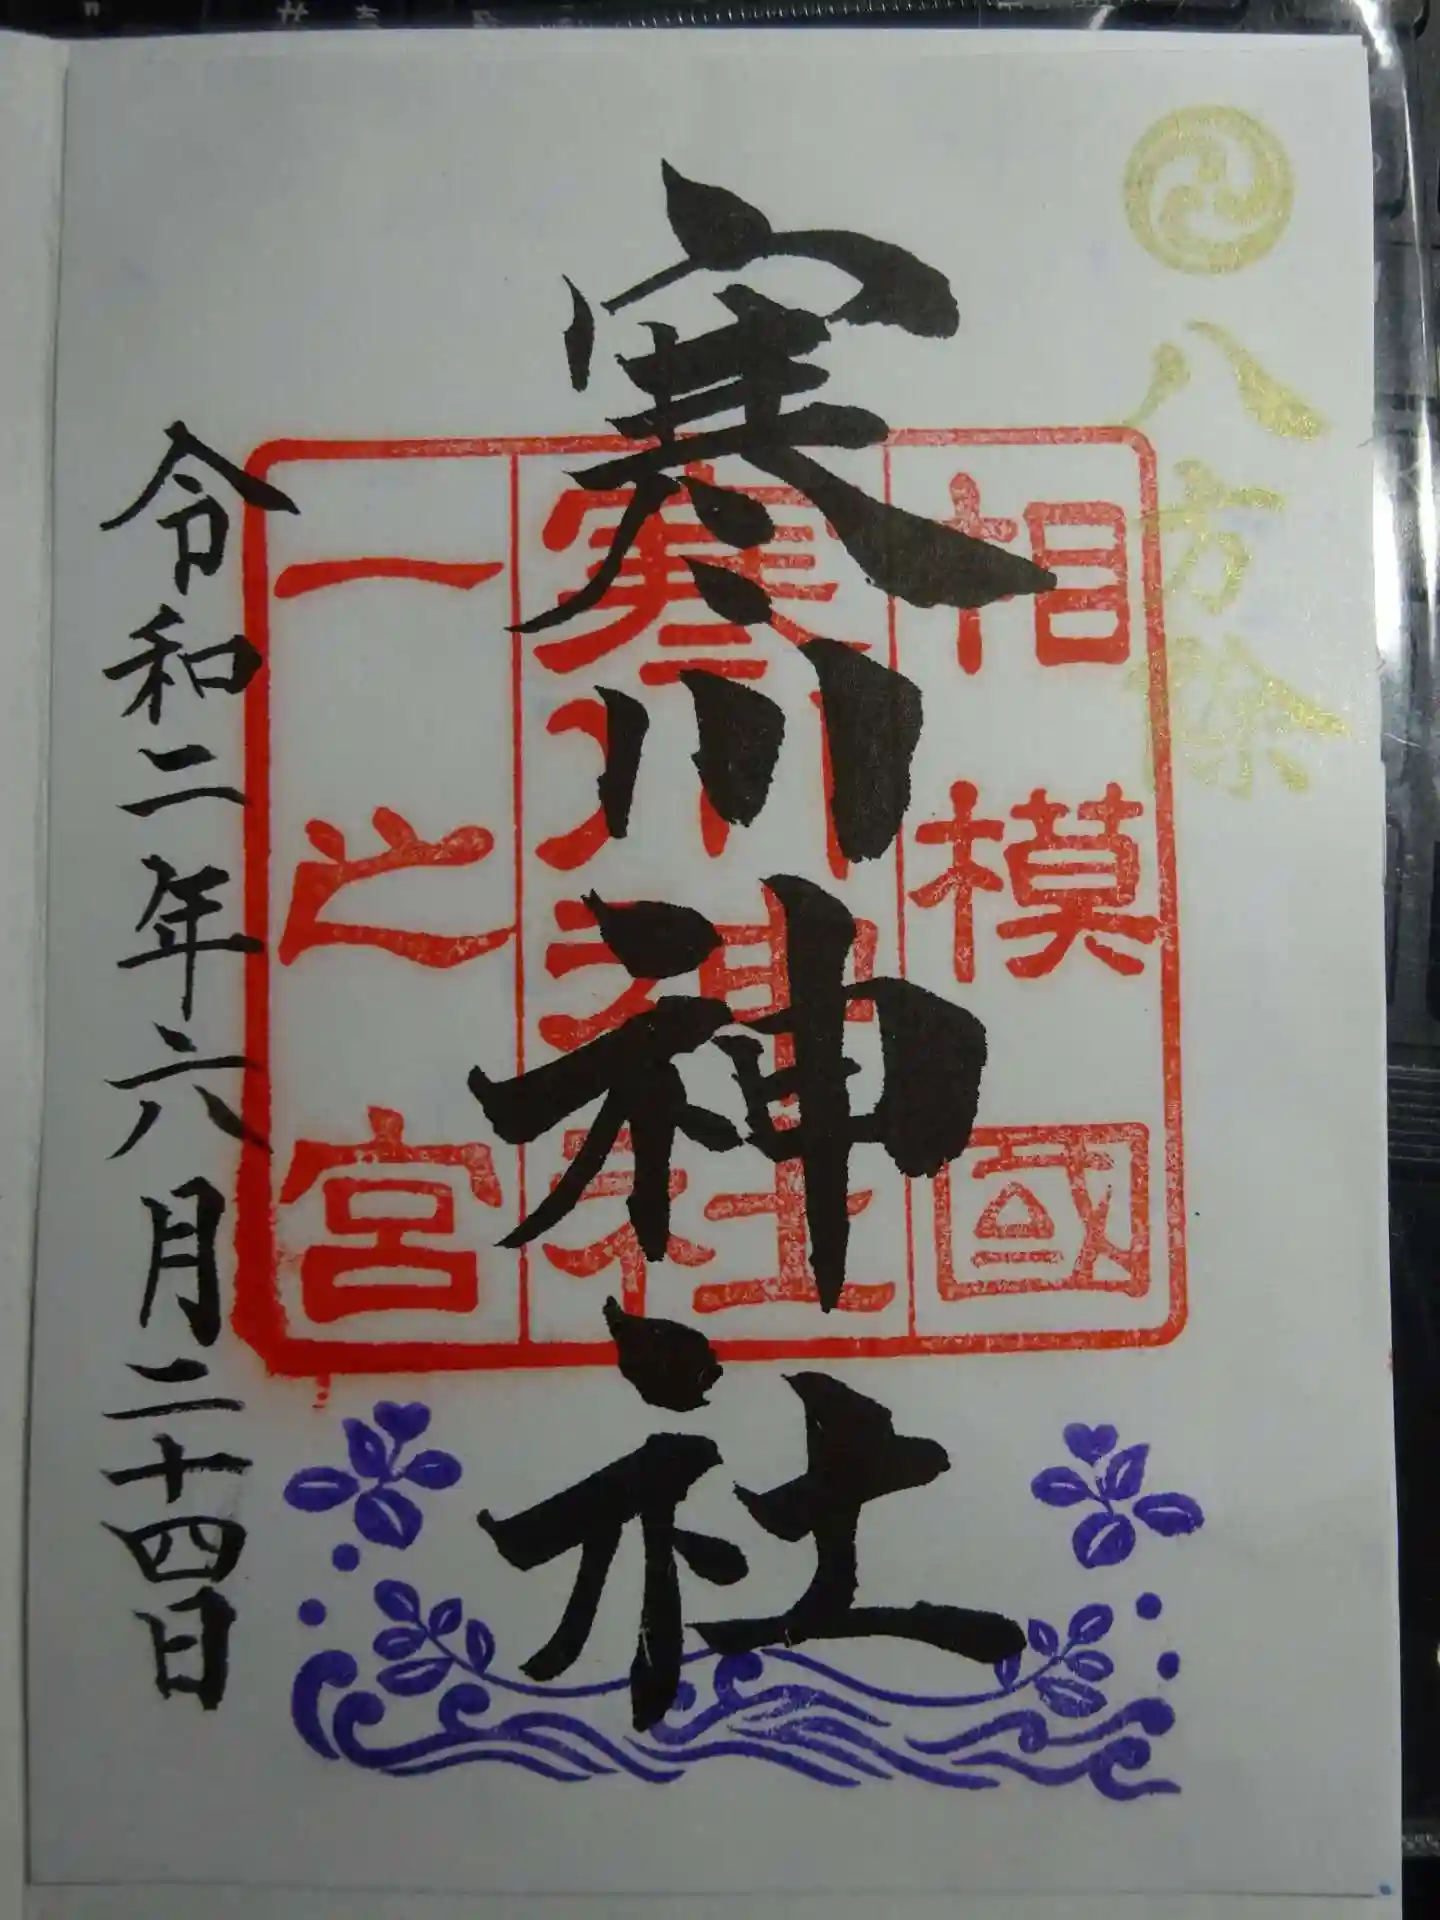 八方除
相模國
寒川神社
寒川神社
一之宮
令和二年六月二十四日